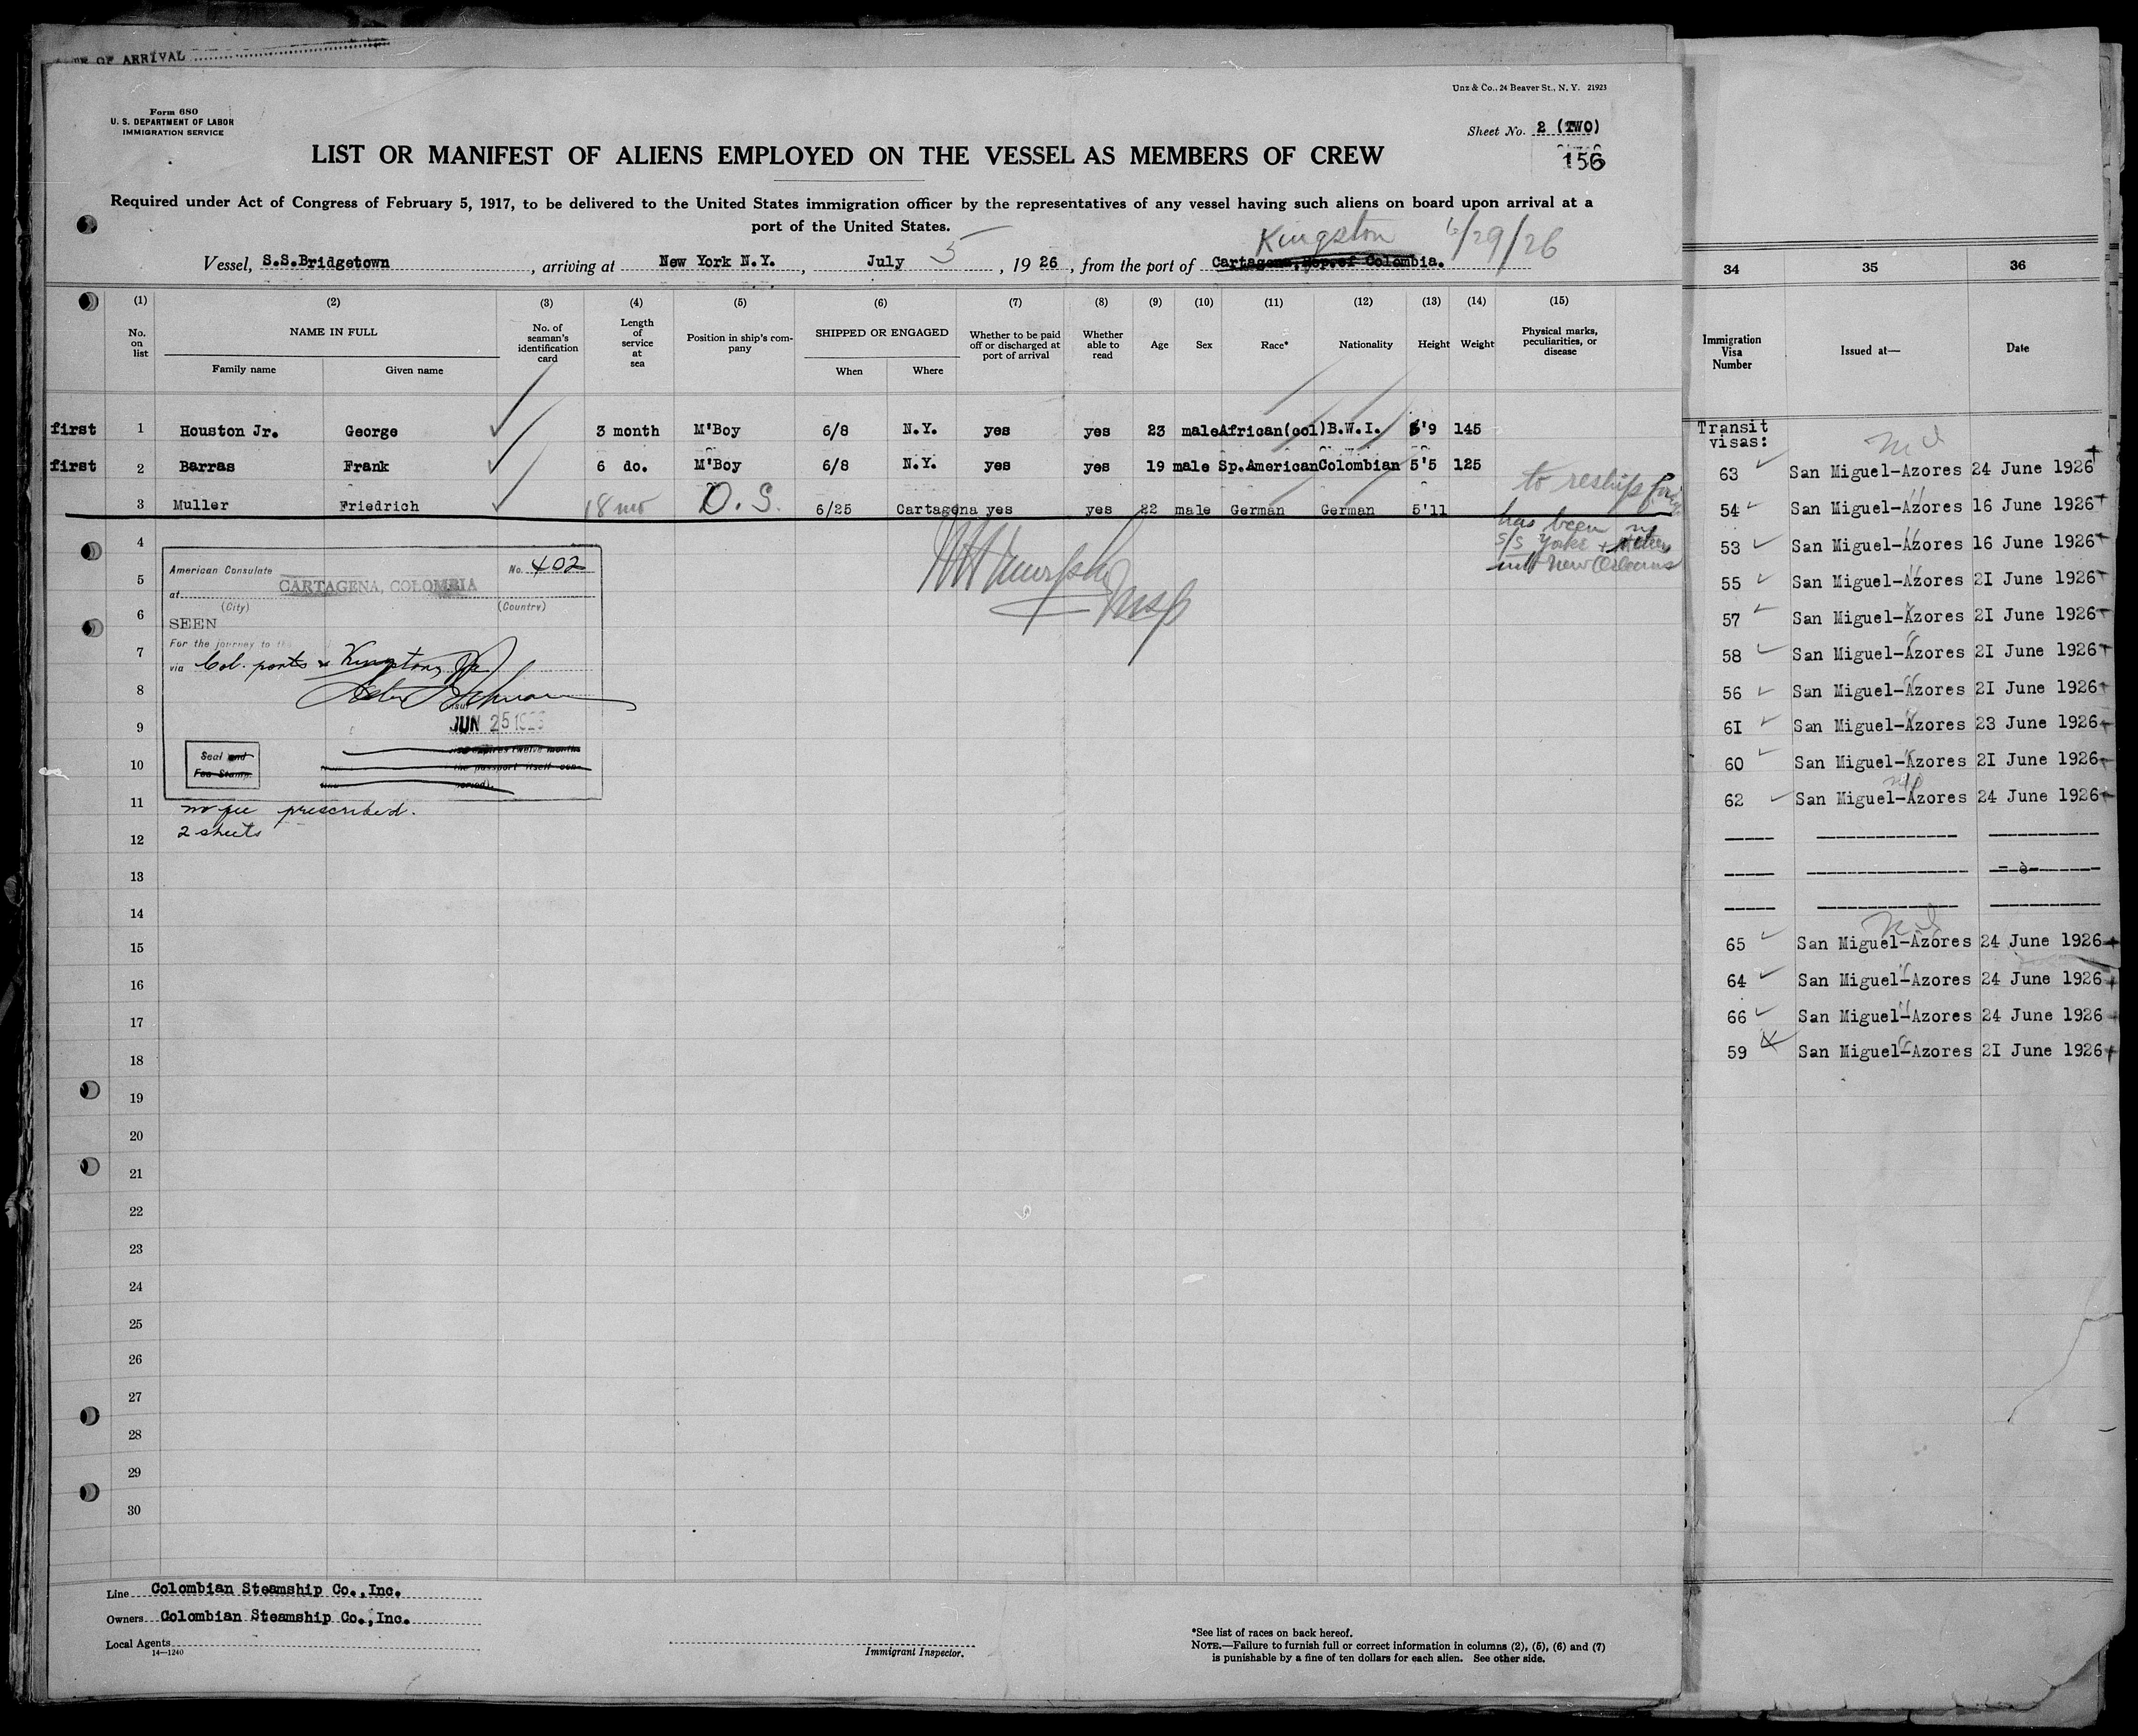 OF ARRIVAL
Form 680
U. S. DEPARTMENT OF LABOR
IMMIGRATION SERVICE
Unz & Co., 24 Beaver St., N. Y. 21923
Sheet No. 2 (TWO)
156
LIST OR MANIFEST OF ALIENS EMPLOYED ON THE VESSEL AS MEMBERS OF CREW
Required under Act of Congress of February 5, 1917, to be delivered to the United States immigration officer by the representatives of any vessel having such aliens on board upon arrival at a
port of the United States.
Kingston 6/29/26
Vessel, S.S.Bridgetown, arriving at New York N.Y., July 5, 1926, from the port of Cartagena, Rep. of Colombia.
(1) (2) (3) (4) (5) (6) (7) (8) (9) (10) (11) (12) (13) (14) (15)
No. on list
NAME IN FULL
Family name Given name
No. of seaman's identification card
Length of service at sea
Position in ship's company
SHIPPED OR ENGAGED
When Where
Whether to be paid off or discharged at port of arrival
Whether able to read
Age
Sex
Race*
Nationality
Height
Weight
Physical marks, peculiarities, or disease
first 1 Houston Jr. George 3 month M'Boy 6/8 N.Y. yes yes 23 male African(col) B.W.I. 5'9 145
first 2 Barras Frank 6 do. M'Boy 6/8 N.Y. yes yes 19 male Sp.American Colombian 5'5 125
3 Muller Friedrich 18 mo O.S. 6/25 Cartagena yes yes 22 male German German 5'11
to reship
has been
S/S Yoke +
New Orleans
4
5
6
7
8
9
10
11
12
13
14
15
16
17
18
19
20
21
22
23
24
25
26
27
28
29
30
American Consulate No. 402
at CARTAGENA, COLOMBIA
(City) (Country)
SEEN
For the journey to the
via Col. ports & Kingston, Ja
JUN 25 1926
Seal and
Fee Stamp
expires twelve months
the passport itself
no fee prescribed.
2 sheets
Murphy
Insp
Line Colombian Steamship Co.,Inc.
Owners Colombian Steamship Co.,Inc.
Local Agents
14—1240
Immigrant Inspector.
*See list of races on back hereof.
NOTE.—Failure to furnish full or correct information in columns (2), (5), (6) and (7)
is punishable by a fine of ten dollars for each alien. See other side.
34 35 36
Immigration Visa Number
Issued at—
Date
Transit
visas:
63 San Miguel-Azores 24 June 1926
54 San Miguel-Azores 16 June 1926
53 San Miguel-Azores 16 June 1926
55 San Miguel-Azores 2I June 1926
57 San Miguel-Azores 2I June 1926
58 San Miguel-Azores 2I June 1926
56 San Miguel-Azores 2I June 1926
6I San Miguel-Azores 23 June 1926
60 San Miguel-Azores 2I June 1926
62 San Miguel-Azores 24 June 1926
65 San Miguel-Azores 24 June 1926
64 San Miguel-Azores 24 June 1926
66 San Miguel-Azores 24 June 1926
59 San Miguel-Azores 2I June 1926